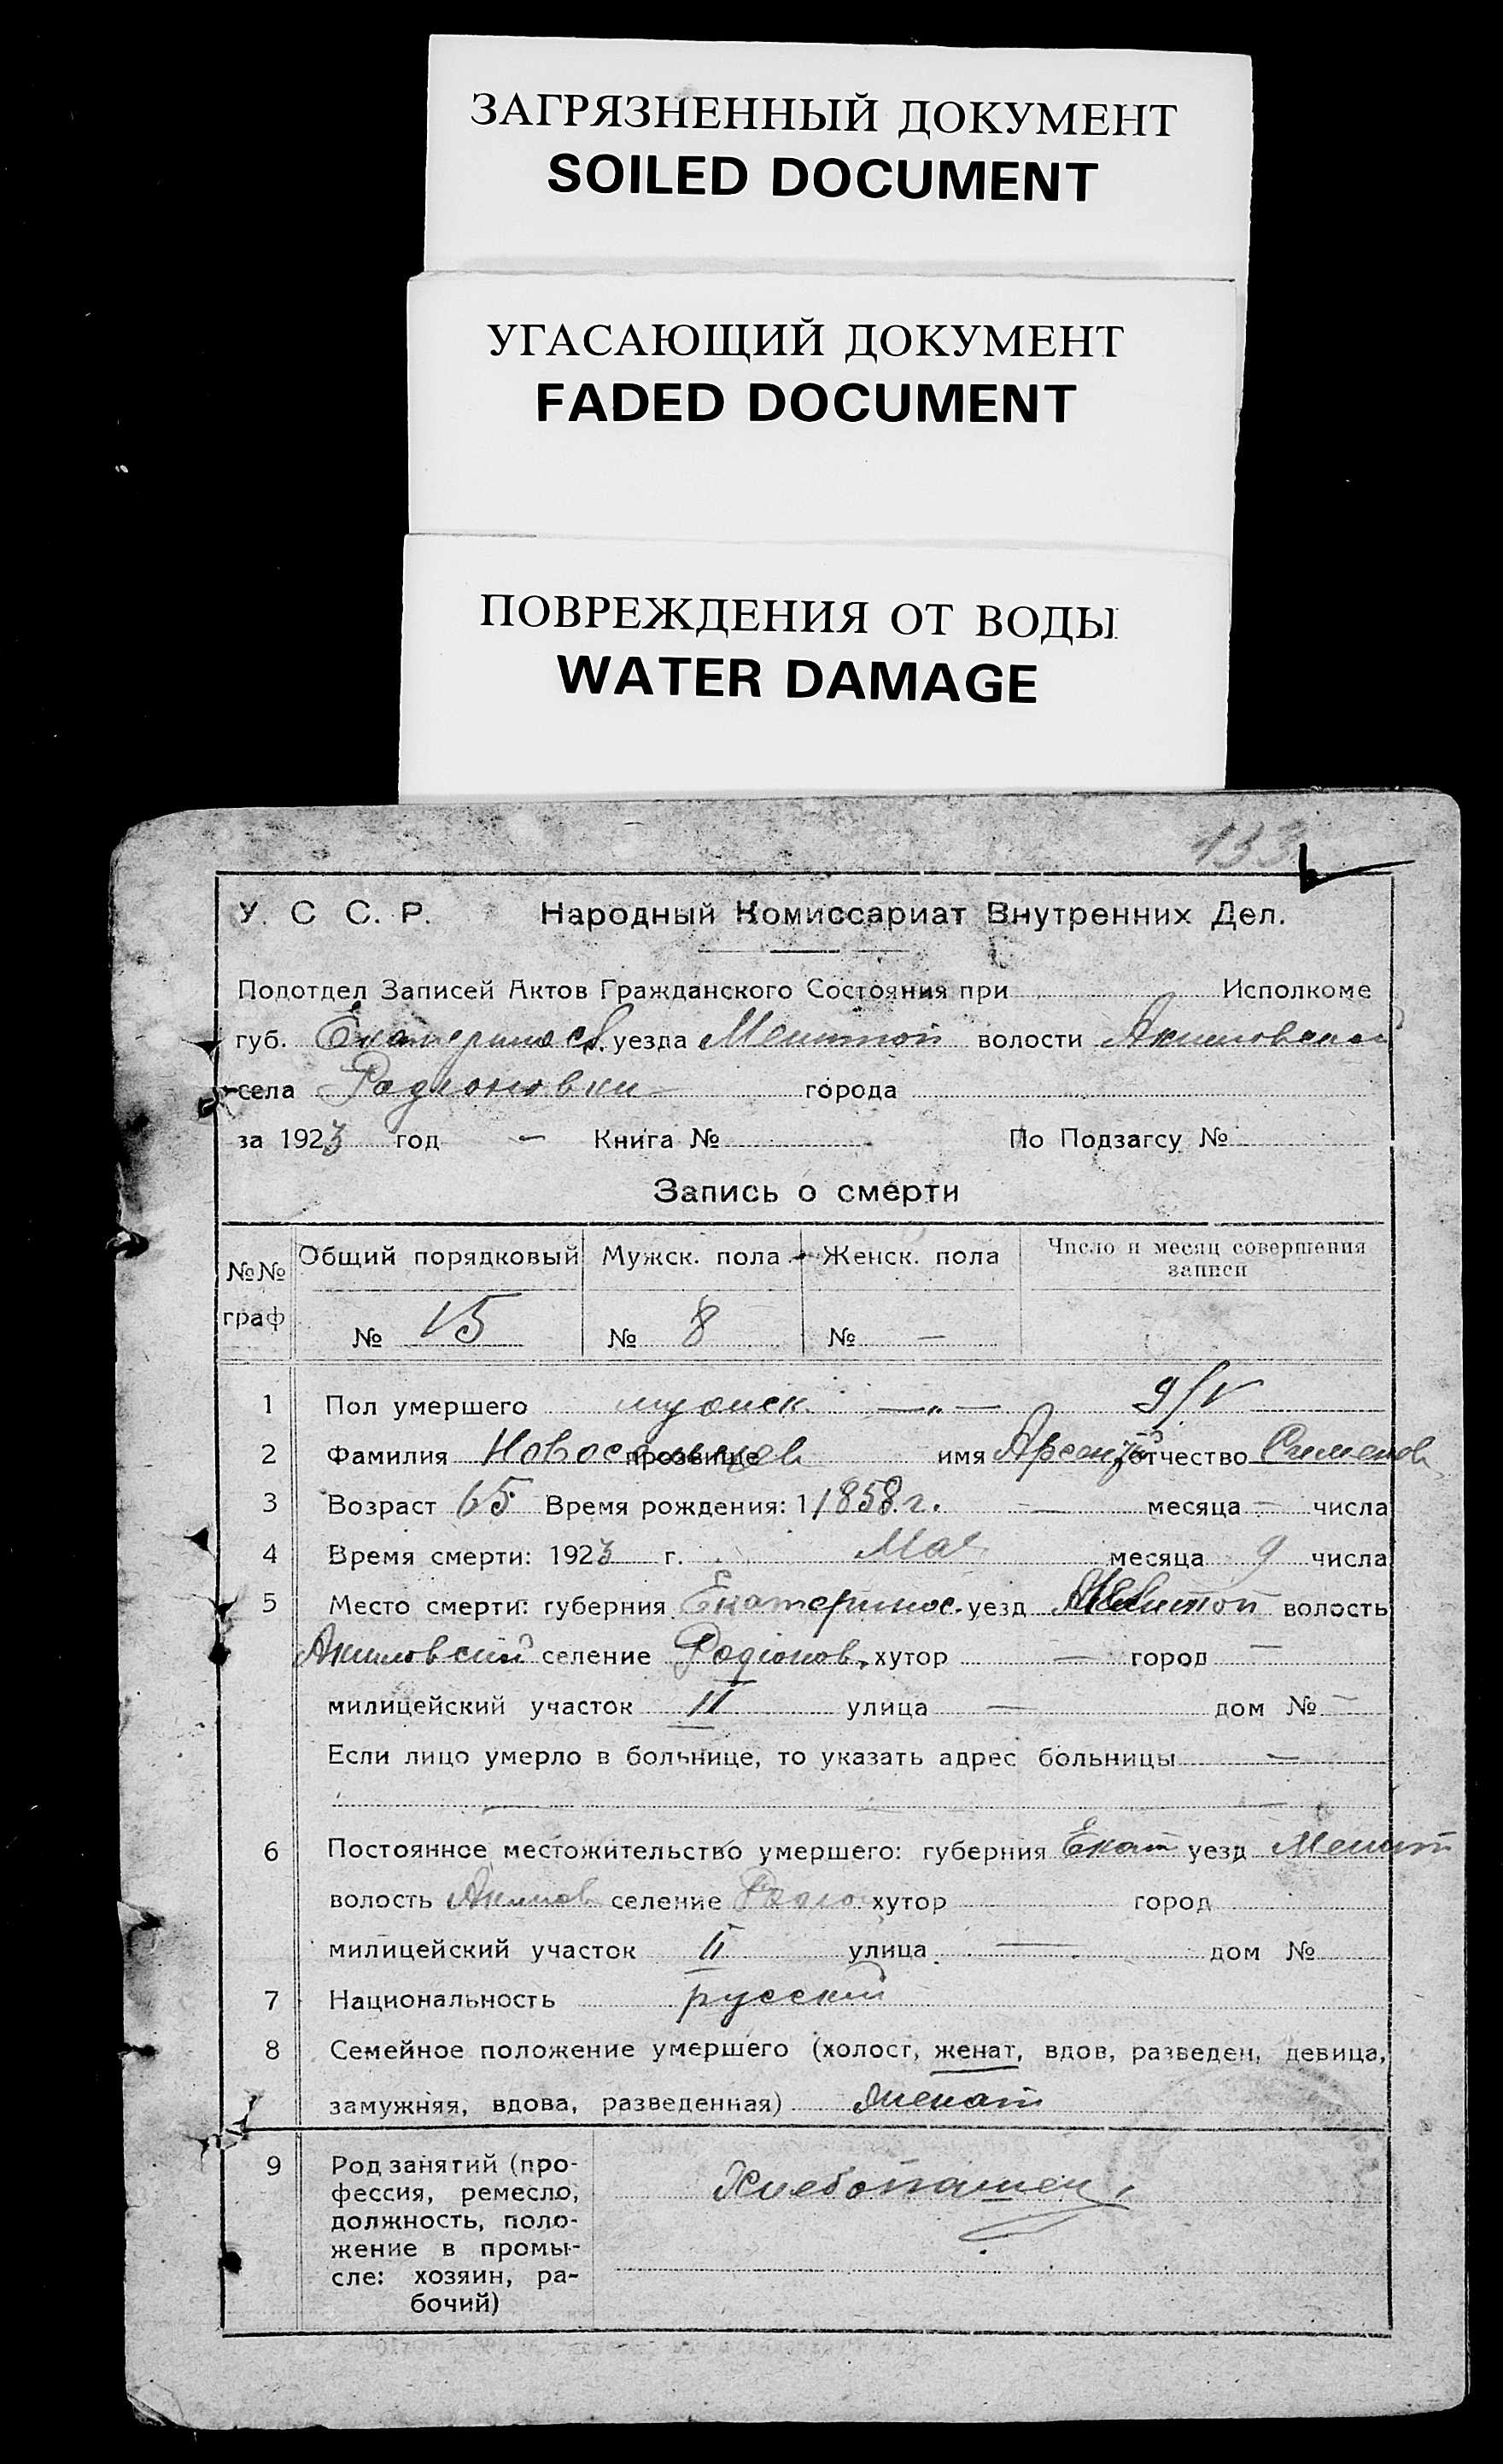 ЗАГРЯЗНЕННЫЙ ДОКУМЕНТ
SOILED DOCUMENT
УГАСАЮЩИЙ ДОКУМЕНТ
FADED DOCUMENT
ПОВРЕЖДЕНИЯ ОТ ВОДЫ
WATER DAMAGE
133
У. С С. Р. Народный Комиссариат Внутренних Дел.
Подотдел Записей Актов Гражданского Состояния при Исполкоме
губ. Екатериносл. уезда Мелитпой волости Акимовской
села Родионовки города
за 1923 год — Книга № По Подзагсу №
Запись о смерти
№№ граф Общий порядковый Мужск. пола Женск. пола Число и месяц совершения
записи
№ 15 № 8 № —
1 Пол умершего мужск. —„— 9/V
2 Фамилия прозвище имя Арсений отчество Сименов
3 Возраст 65 Время рождения: 1 1858 г. — месяца — числа
4 Время смерти: 1923 г. Мая месяца 9 числа
5 Место смерти: губерния Екатеринос. уезд волость
Акимовский селение Родіонов. хутор — город —
милицейский участок II улица — дом № —
Если лицо умерло в больнице, то указать адрес больницы —
— —
6 Постоянное местожительство умершего: губерния Екат уезд Мелит
волость Акимов селение Родио хутор город
милицейский участок II улица — дом №
7 Национальность русский
8 Семейное положение умершего (холост, женат, вдов, разведен, девица,
замужняя, вдова, разведенная) женат
9 Род занятий (про-
фессия, ремесло,
должность, поло-
жение в промы-
сле: хозяин, ра-
бочий)
Хлебопашец